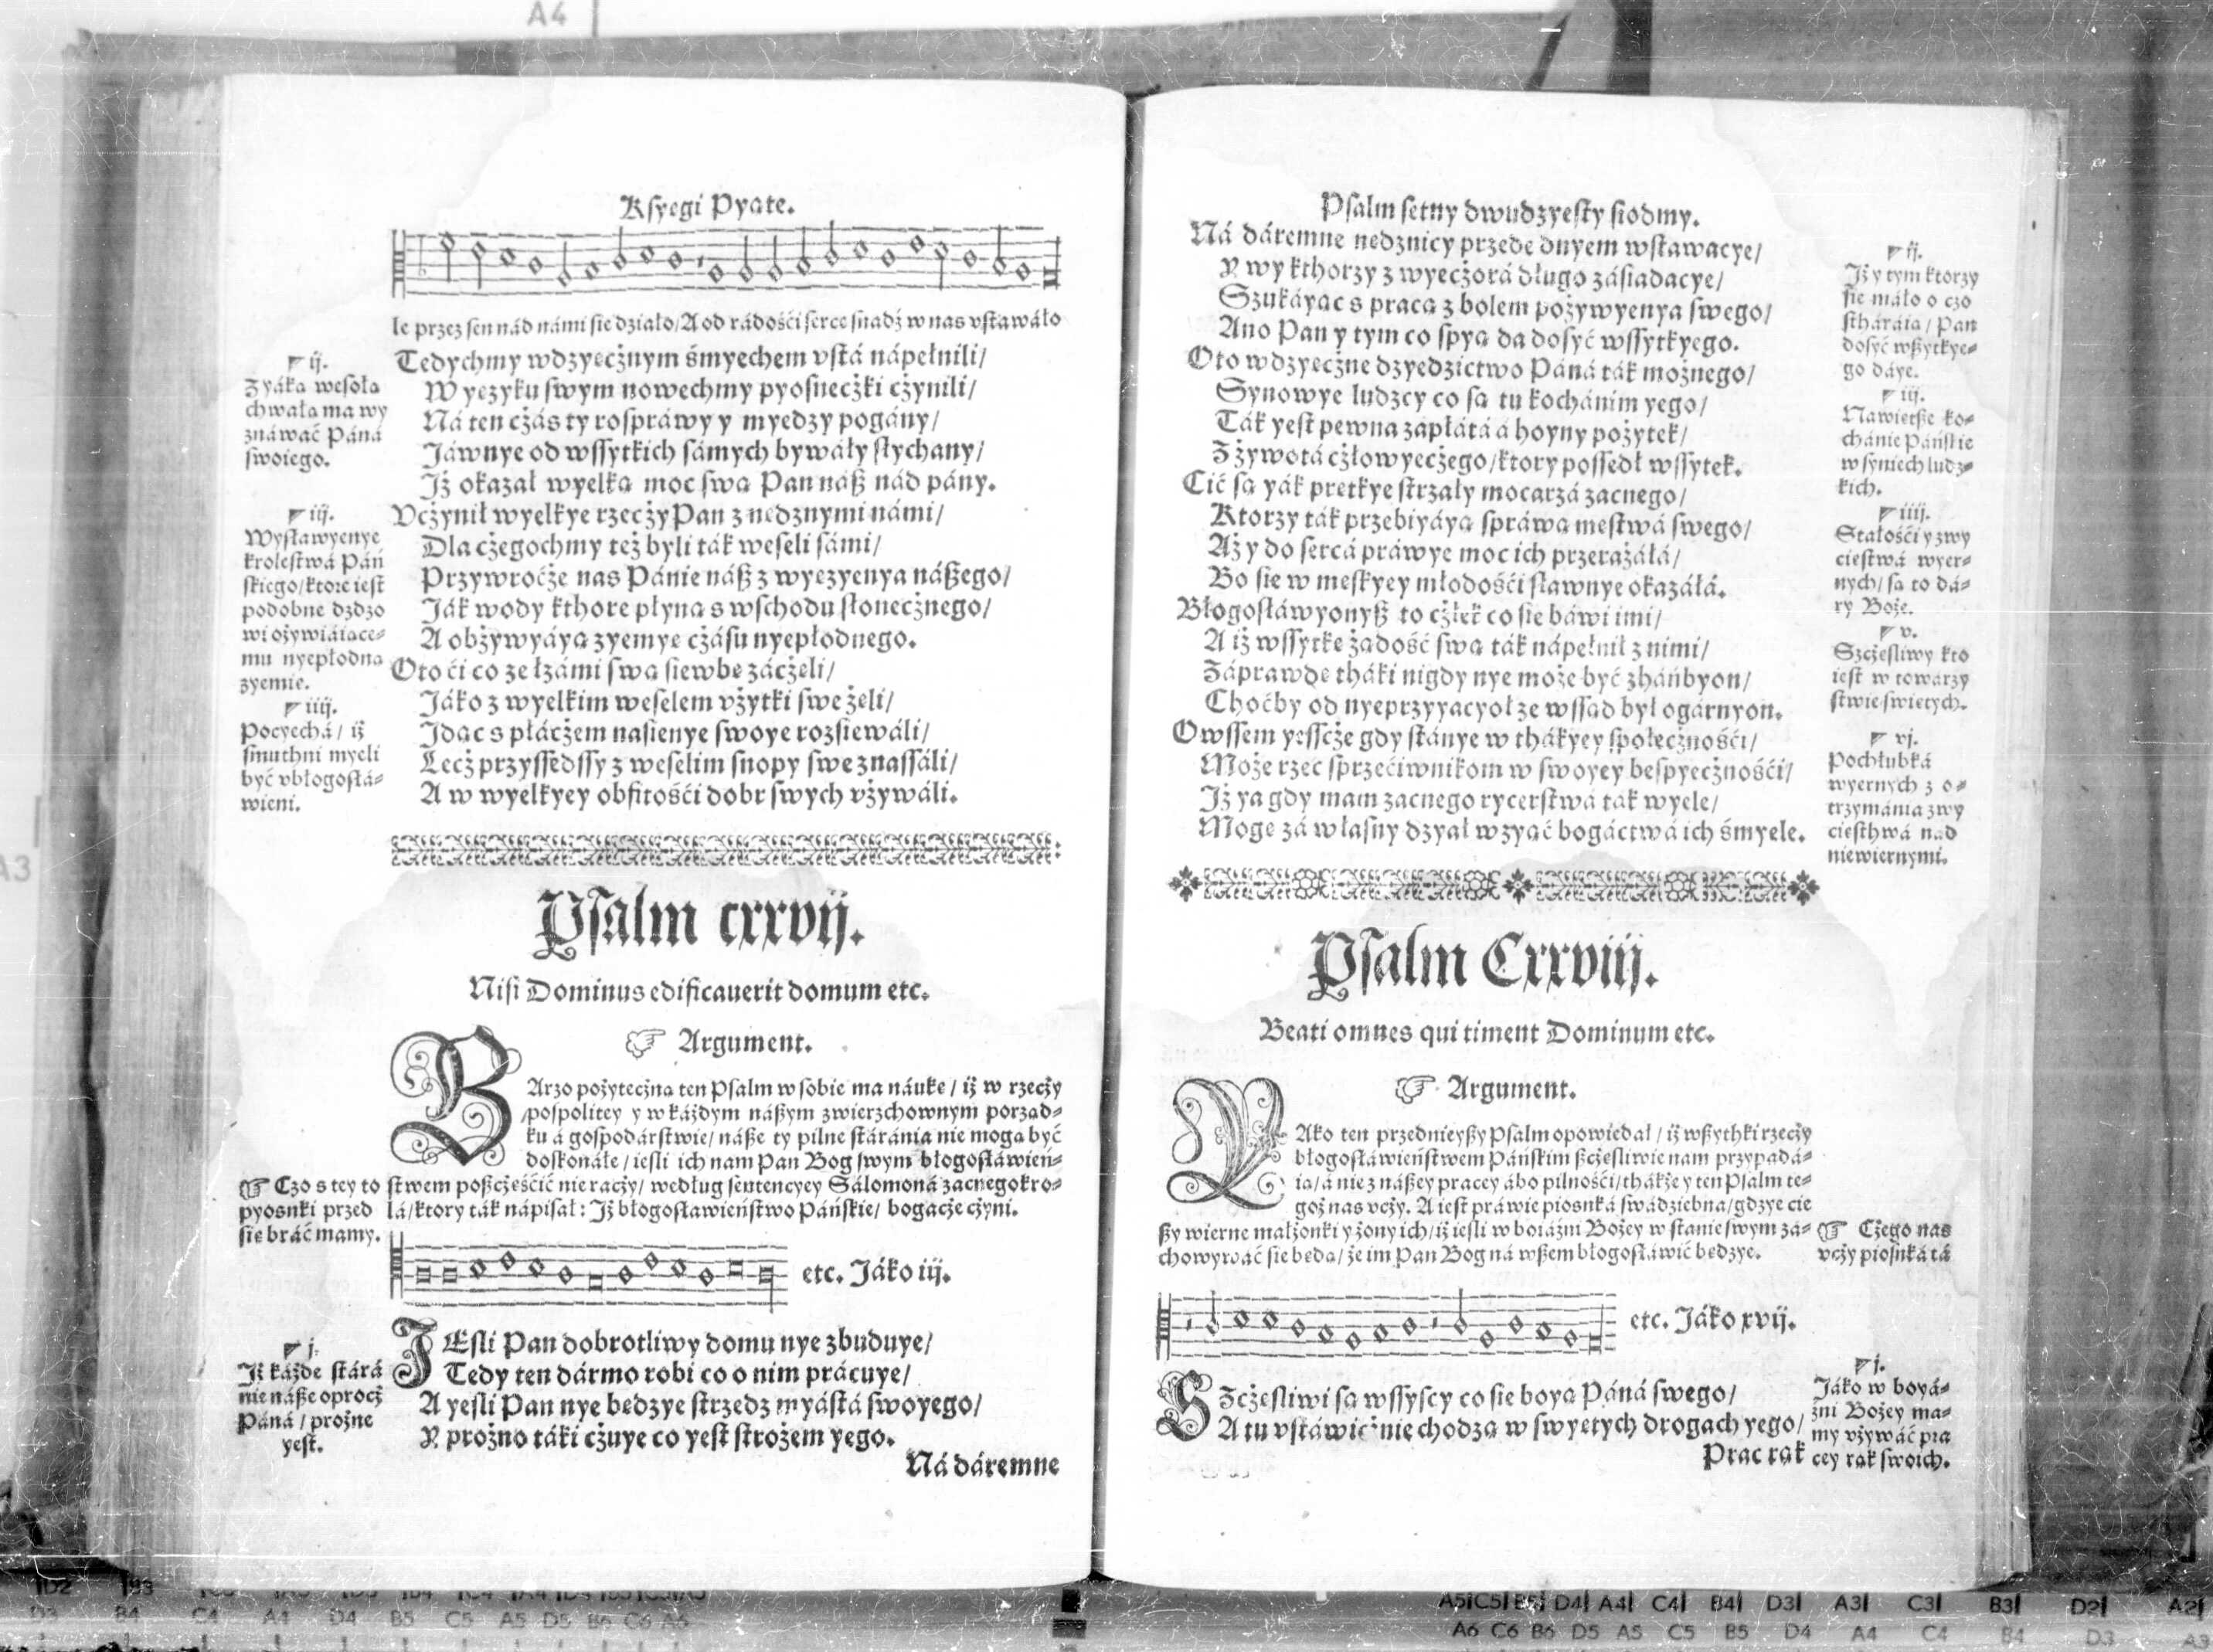 Ksyegi Pyate.
le przez sen nád námi sie działo/ A od rádośći serce snadź w nas vstawáło
Tedychmy wdzyecżnym śmyechem vstá nápełnili/
W yezyku swym nowechmy pyosnecżki cżynili/
Ná ten cżás ty rospráwy y myedzy pogány/
Jáwnye od wssytkich sámych bywáły słychany/
Jż okazał wyelka moc swa Pan náß nád pány.
Vcżynił wyelkye rzecży Pan z nedznymi námi/
Dla cżegochmy też byli ták weseli sámi/
Przywroćże nas Pánie náß z wyezyenya náßego/
Ják wody kthore płyna s wschodu słonecżnego/
A obżywyáya zyemye cżásu nyepłodnego.
Oto ći co ze łzámi swa siewbe zácżeli/
Jáko z wyelkim weselem vżytki swe żeli/
Jdac s płácżem nasienye swoye rozsiewáli/
Lecż przyssedssy z weselim snopy swe znassáli/
A w wyelkyey obfitośći dobr swych vżywáli.
ij.
Z yáka wesoła
chwała ma wy
znáwáć Páná
swoiego.
iij.
Wysławyenye
krolestwá Páń
skiego/ ktore iest
podobne dzdzo
wi ożywiáiace-
mu nyepłodna
zyemie.
iiij.
Pocyechá/ iż
smuthni myeli
być vbłogosłá-
wieni.
Psalm cxxvij.
Nisi Dominus edificauerit domum etc.
Argument.
BArzo pożytecżna ten Psalm w sobie ma náuke/ iż w rzecży
pospolitey y w káżdym náßym zwierzchownym porzad-
ku á gospodárstwie/ náße ty pilne stáránia nie moga być
doskonáłe/ iesli ich nam Pan Bog swym błogosłáwień-
stwem poßcżeśćić nie racży/ według sentencyey Sálomoná zacnego kro-
lá/ ktory ták nápisał: Jż błogosławieństwo Páńskie/ bogacże cżyni.
Czo s tey to
pyosnki przed
sie bráć mamy.
etc. Jáko iij.
JEsli Pan dobrotliwy domu nye zbuduye/
Tedy ten dármo robi co o nim prácuye/
A yesli Pan nye bedzye strzedz myástá swoyego/
Y prożno táki cżuye co yest strożem yego.
j.
Jż káżde stárá
nie náße oprocż
Páná/ prożne
yest.
Ná dáremne
Psalm setny dwudzyesty siodmy.
Ná dáremne nedznicy przede dnyem wstawacye/
Y wy kthorzy z wyecżorá długo zásiadacye/
Szukáyac s praca z bolem pożywyenya swego/
Ano Pan y tym co spya da dosyć wssytkyego.
Oto wdzyecżne dzyedzictwo Páná ták możnego/
Synowye ludzcy co sa tu kochánim yego/
Ták yest pewna zapłátá á hoyny pożytek/
Z żywotá cżłowyecżego/ ktory possedł wssytek.
Cić sa yák pretkye strzały mocarzá zacnego/
Ktorzy ták przebiyáya spráwa mestwá swego/
Aż y do sercá práwye moc ich przerażáłá/
Bo sie w meskyey młodośći sławnye okazáłá.
Błogosłáwyonyß to cżłek co sie báwi imi/
A iż wssytke żadość swa ták nápełnił z nimi/
Záprawde tháki nigdy nye może być zháńbyon/
Choćby od nyeprzyyacyoł ze wssad był ogárnyon.
Owssem yesscże gdy stánye w thákyey społecżnośći/
Może rzec sprzećiwnikom w swoyey bespyecżnośći/
Jż ya gdy mam zacnego rycerstwá tak wyele/
Moge zá własny dzyał wzyáć bogáctwá ich śmyele.
ij.
Jż y tym ktorzy
sie máło o czo
stháráia/ Pan
dosyć wßytkye-
go dáye.
iij.
Nawietße ko-
chánie Páńskie
w syniech ludz-
kich.
iiij.
Stałośći y zwy
ciestwá wyer-
nych/ sa to dá-
ry Boże.
v.
Szcżesliwy kto
iest w towárzy
stwie swietych.
vj.
Pochłubká
wyernych z o-
trzymánia zwy
ciesthwá nad
niewiernymi.
Psalm Cxxviij.
Beati omnes qui timent Dominum etc.
Argument.
YAko ten przednieyßy Psalm opowiedał/ iż wßythki rzecży
błogosłáwieństwem Páńskim ßcżesliwie nam przypadá-
ia/ á nie z náßey pracey ábo pilnośći/ thákże y ten Psalm te-
goż nas vcży. A iest práwie piosnká swádziebna/ gdzye cie
ßy wierne małżonki y żony ich/ iż iesli w boiáźni Bożey w stanie swym zá-
chowywáć sie beda/ że im Pan Bog ná wßem błogosłáwić bedzye.
Cżego nas
vcży piosnká tá
etc. Jáko xvij.
SZcżesliwi sa wssyscy co sie boya Páná swego/
A tu vstáwicżnie chodza w swyetych drogach yego/
j.
Jáko w boyá-
źni Bożey ma-
my vżywáć pra
cey rak swoich.
Prac rak